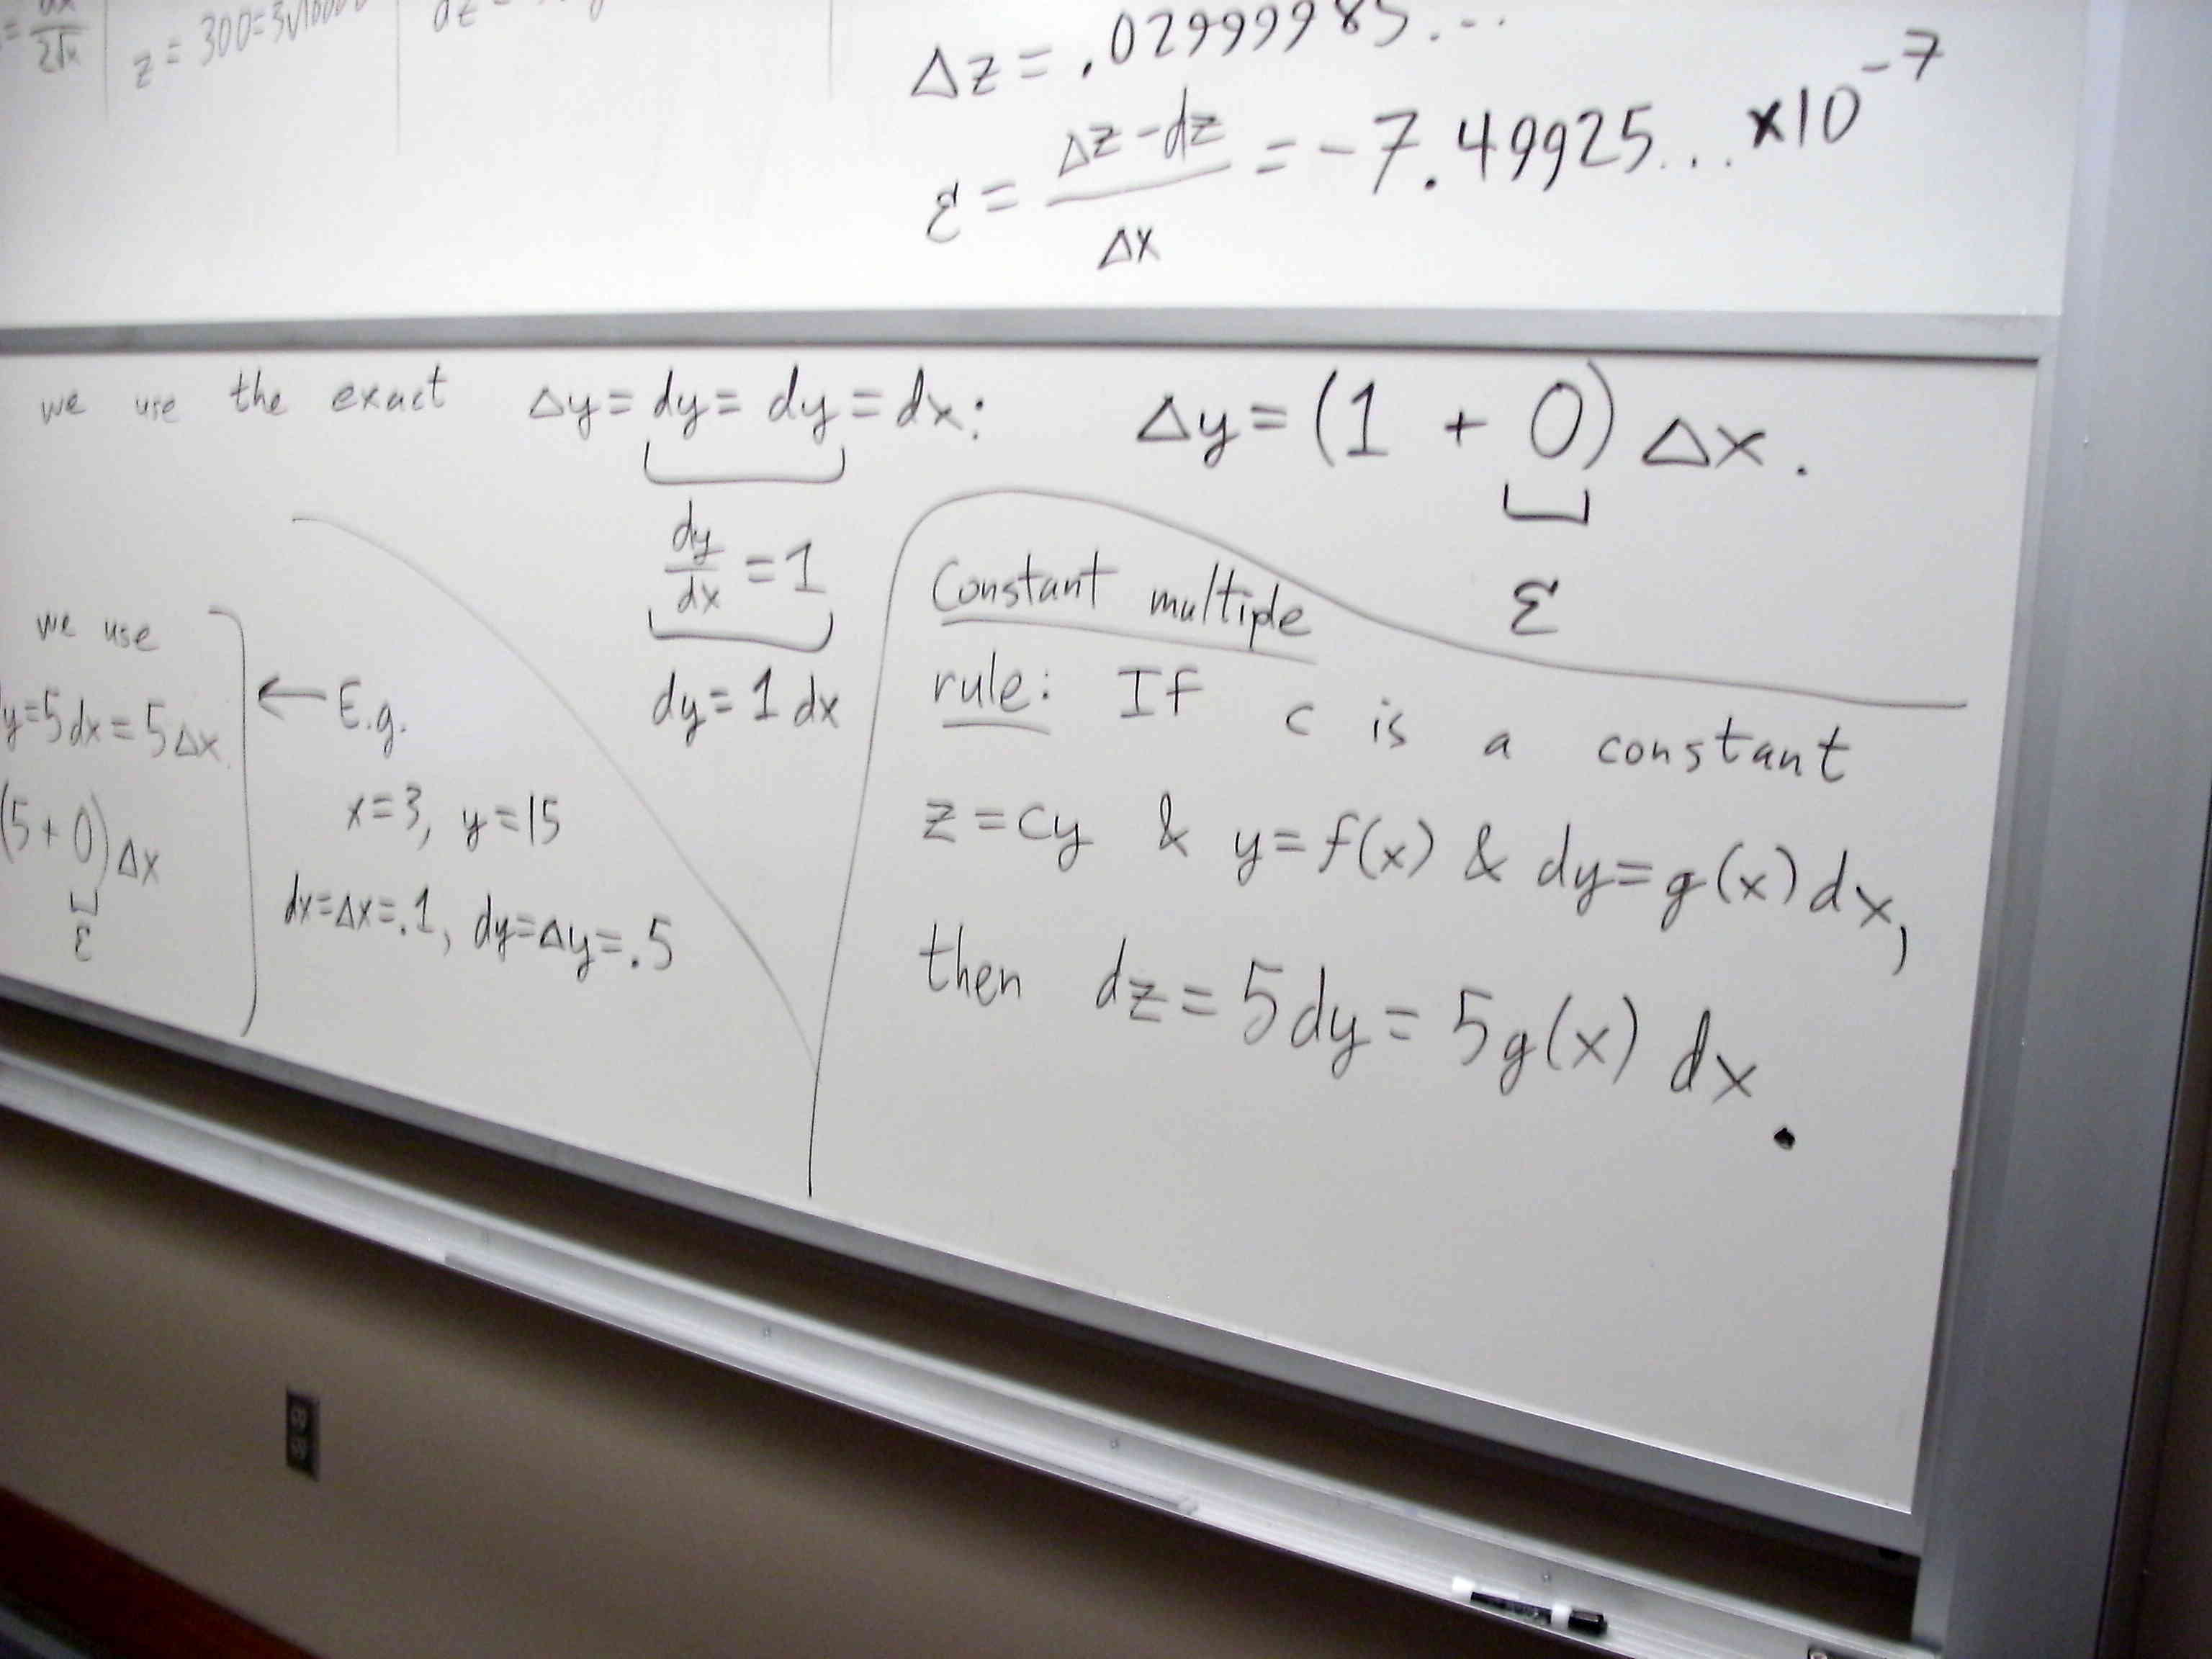 z = 300 = 3√10000
Δz = .02999985...
ε = (Δz - dz)/Δx = -7.49925... ×10^-7
we use the exact Δy = dy = dy = dx: Δy = (1 + 0) Δx.
ε
dy/dx = 1
dy = 1 dx
we use
y = 5dx = 5Δx
(5 + 0) Δx
ε
← E.g.
x = 3, y = 15
dx = Δx = .1, dy = Δy = .5
Constant multiple
rule: If c is a constant
z = cy & y = f(x) & dy = g(x) dx,
then dz = 5dy = 5g(x) dx.